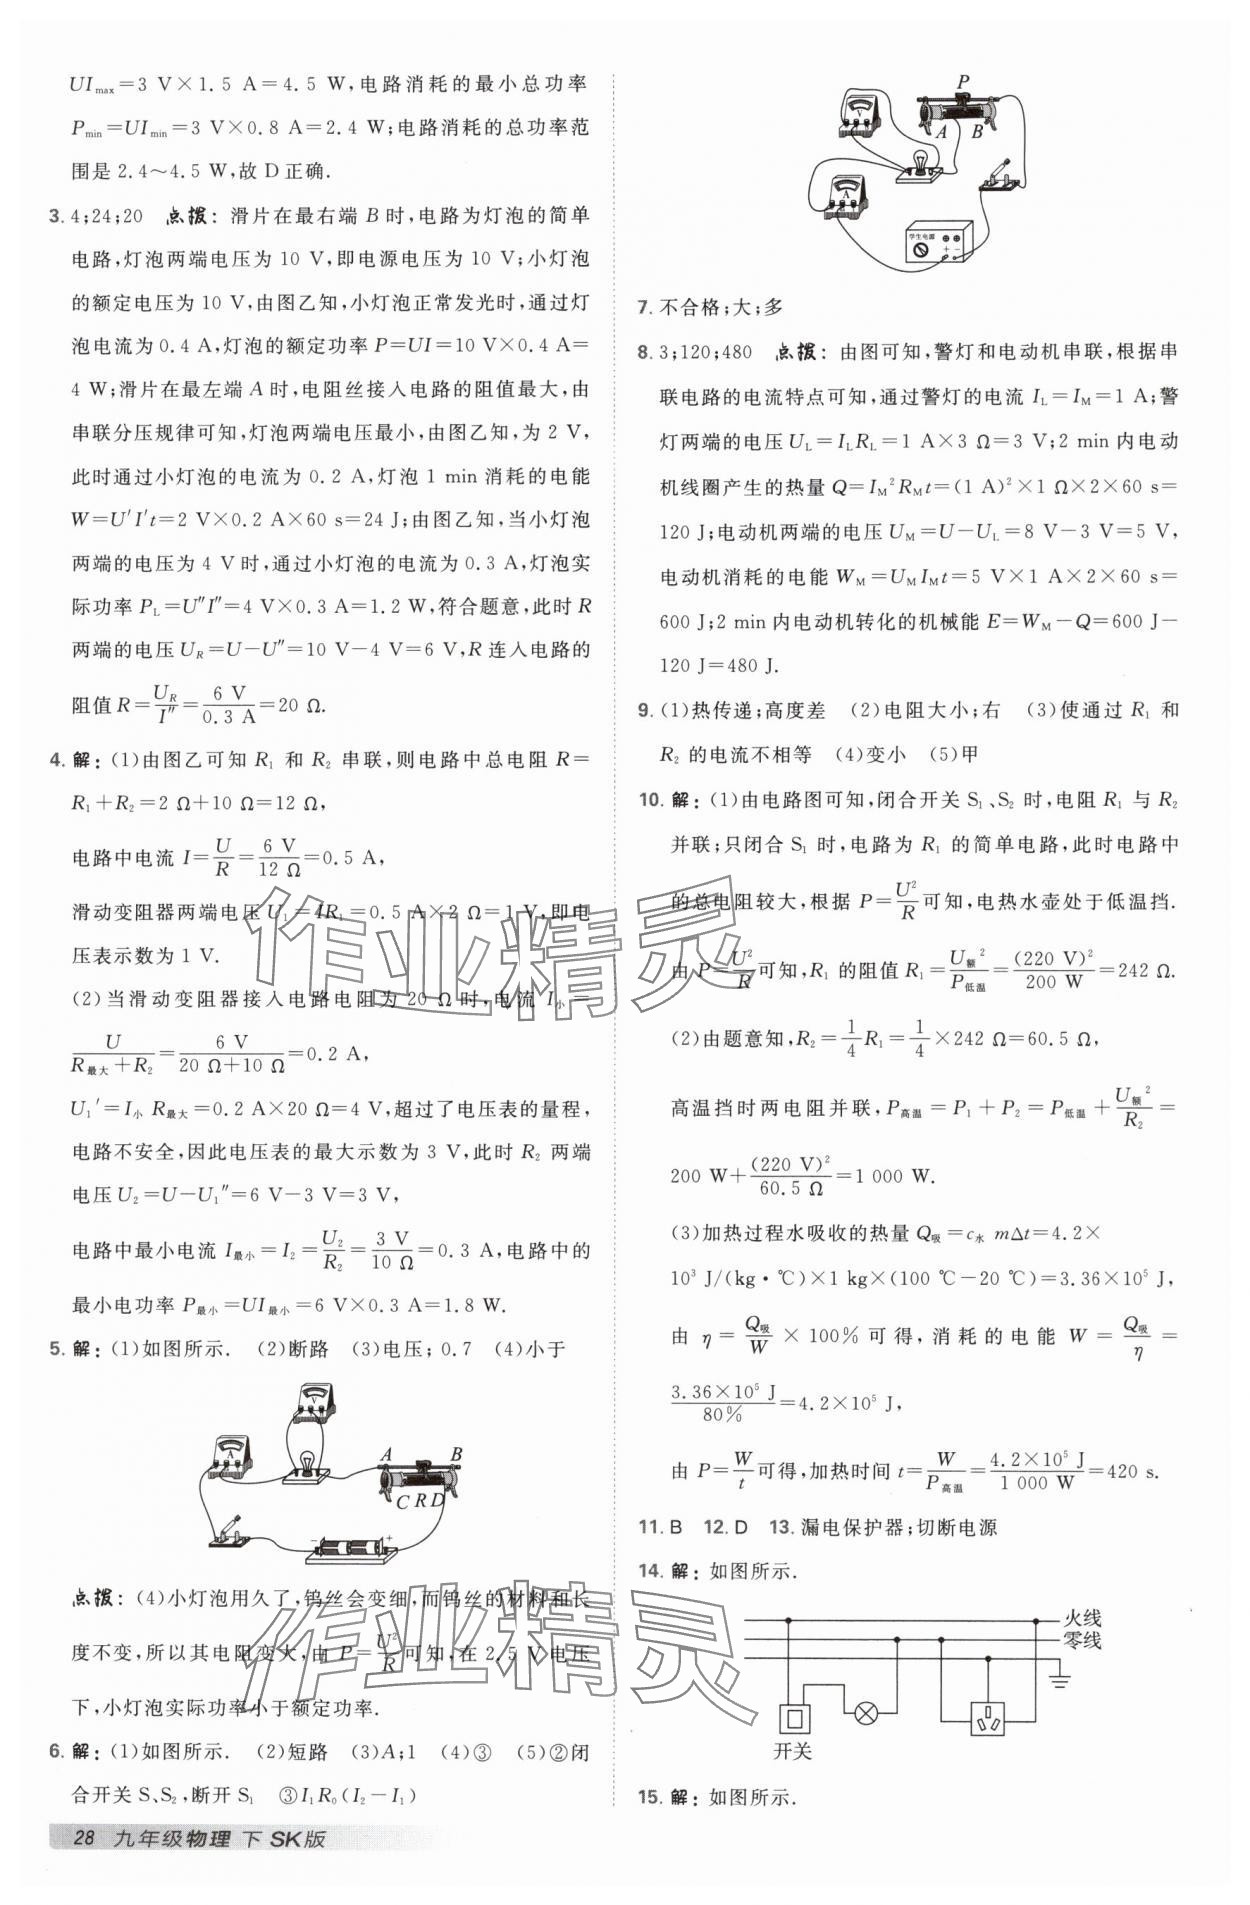 UI max=3 V×1.5 A=4.5 W,电路消耗的最小总功率
P min=UI min=3 V×0.8 A=2.4 W;电路消耗的总功率范
围是 2.4~4.5 W,故 D 正确.
3. 4;24;20 点拨:滑片在最右端 B 时,电路为灯泡的简单
电路,灯泡两端电压为 10 V,即电源电压为 10 V;小灯泡
的额定电压为 10 V,由图乙知,小灯泡正常发光时,通过灯
泡电流为 0.4 A,灯泡的额定功率 P=UI=10 V×0.4 A=
4 W;滑片在最左端 A 时,电阻丝接入电路的阻值最大,由
串联分压规律可知,灯泡两端电压最小,由图乙知,为 2 V,
此时通过小灯泡的电流为 0.2 A,灯泡 1 min 消耗的电能
W=U′I′t=2 V×0.2 A×60 s=24 J;由图乙知,当小灯泡
两端的电压为 4 V 时,通过小灯泡的电流为 0.3 A,灯泡实
际功率 P_L=U″I″=4 V×0.3 A=1.2 W,符合题意,此时 R
两端的电压 U_R=U−U″=10 V−4 V=6 V,R 连入电路的
阻值 R=U_R/I″=6 V/0.3 A=20 Ω.
4. 解:(1)由图乙可知 R₁ 和 R₂ 串联,则电路中总电阻 R=
R₁+R₂=2 Ω+10 Ω=12 Ω,
电路中电流 I=U/R=6 V/12 Ω=0.5 A,
滑动变阻器两端电压 U₁=IR₁=0.5 A×2 Ω=1 V,即电
压表示数为 1 V.
(2)当滑动变阻器接入电路电阻为 20 Ω 时,电流 I小=
U/(R最大+R₂)=6 V/(20 Ω+10 Ω)=0.2 A,
U₁′=I小 R最大=0.2 A×20 Ω=4 V,超过了电压表的量程,
电路不安全,因此电压表的最大示数为 3 V,此时 R₂ 两端
电压 U₂=U−U₁″=6 V−3 V=3 V,
电路中最小电流 I最小=I₂=U₂/R₂=3 V/10 Ω=0.3 A,电路中的
最小电功率 P最小=UI最小=6 V×0.3 A=1.8 W.
5. 解:(1)如图所示. (2)断路 (3)电压;0.7 (4)小于
V
A
A B
C R D
− +
点拨:(4)小灯泡用久了,钨丝会变细,而钨丝的材料和长
度不变,所以其电阻变大,由 P=U²/R 可知,在 2.5 V 电压
下,小灯泡实际功率小于额定功率.
6. 解:(1)如图所示. (2)短路 (3)A;1 (4)③ (5)②闭
合开关 S、S₂,断开 S₁ ③I₁R₀(I₂−I₁)
28 九年级物理 下 SK版
P
V
A B
A
学生电源
+ −
7. 不合格;大;多
8. 3;120;480 点拨:由图可知,警灯和电动机串联,根据串
联电路的电流特点可知,通过警灯的电流 I_L=I_M=1 A;警
灯两端的电压 U_L=I_LR_L=1 A×3 Ω=3 V;2 min 内电动
机线圈产生的热量 Q=I_M²R_Mt=(1 A)²×1 Ω×2×60 s=
120 J;电动机两端的电压 U_M=U−U_L=8 V−3 V=5 V,
电动机消耗的电能 W_M=U_MI_Mt=5 V×1 A×2×60 s=
600 J;2 min 内电动机转化的机械能 E=W_M−Q=600 J−
120 J=480 J.
9. (1)热传递;高度差 (2)电阻大小;右 (3)使通过 R₁ 和
R₂ 的电流不相等 (4)变小 (5)甲
10. 解:(1)由电路图可知,闭合开关 S₁、S₂ 时,电阻 R₁ 与 R₂
并联;只闭合 S₁ 时,电路为 R₁ 的简单电路,此时电路中
的总电阻较大,根据 P=U²/R 可知,电热水壶处于低温挡.
由 P=U²/R 可知,R₁ 的阻值 R₁=U额²/P低温=(220 V)²/200 W=242 Ω.
(2)由题意知,R₂=1/4 R₁=1/4×242 Ω=60.5 Ω,
高温挡时两电阻并联,P高温=P₁+P₂=P低温+U额²/R₂=
200 W+(220 V)²/60.5 Ω=1 000 W.
(3)加热过程水吸收的热量 Q吸=c水 mΔt=4.2×
10³ J/(kg·℃)×1 kg×(100 ℃−20 ℃)=3.36×10⁵ J,
由 η=Q吸/W×100%可得,消耗的电能 W=Q吸/η=
3.36×10⁵ J/80%=4.2×10⁵ J,
由 P=W/t 可得,加热时间 t=W/P高温=4.2×10⁵ J/1 000 W=420 s.
11. B 12. D 13. 漏电保护器;切断电源
14. 解:如图所示.
火线
零线
开关
15. 解:如图所示.
作业精灵
作业精灵